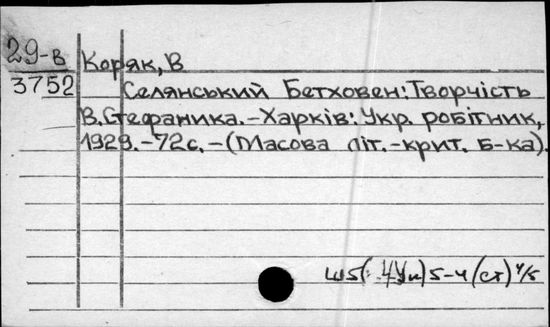 29-в Коряк, В
3752 Селянський Бетховен: Творчість
В. Стефаника. - Харків: Укр. робітник,
1929. - 72 с. - (Масова літ. - крит. б-ка).
Ш5(4Ук)5-4(ст)